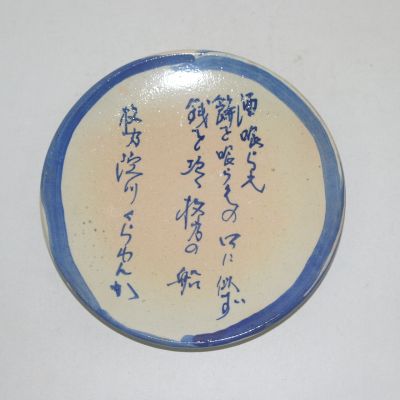 酒喰らえ
餅を喰らえの口に似ず
銭を乞う枚方の船
枚方淀川くらわんか